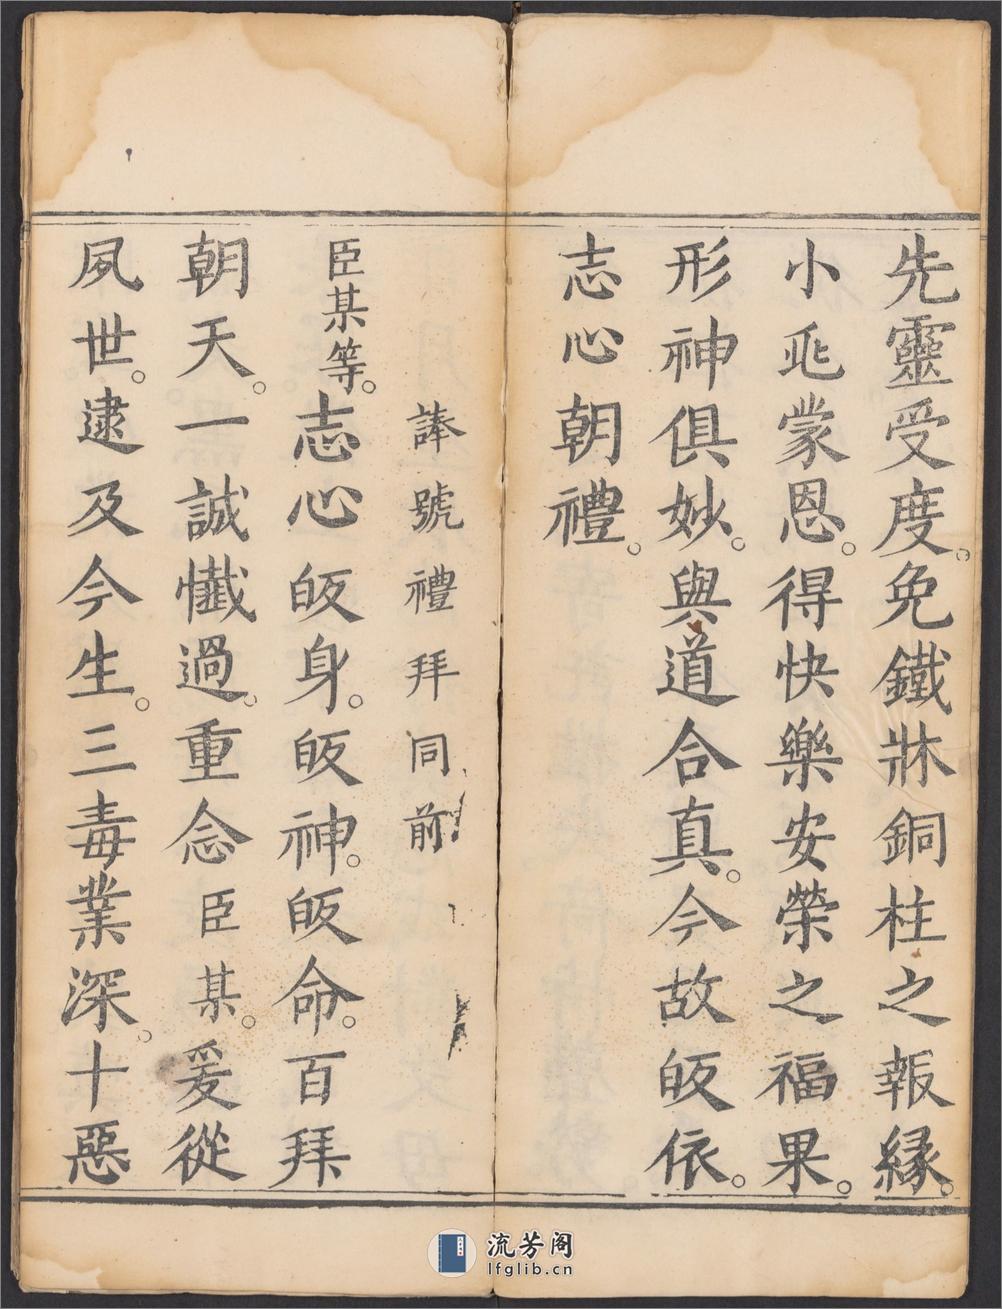 先靈受度。免鐵牀銅柱之報緣。
小兆蒙恩。得快樂安榮之福果。
形神俱妙。與道合真。今故皈依。
志心朝禮。
諱號禮拜同前
臣某等。志心皈身。皈神。皈命。百拜
朝天。一誠懺過。重念臣某。爰從
夙世。逮及今生。三毒業深。十惡
流芳阁
lfglib.cn